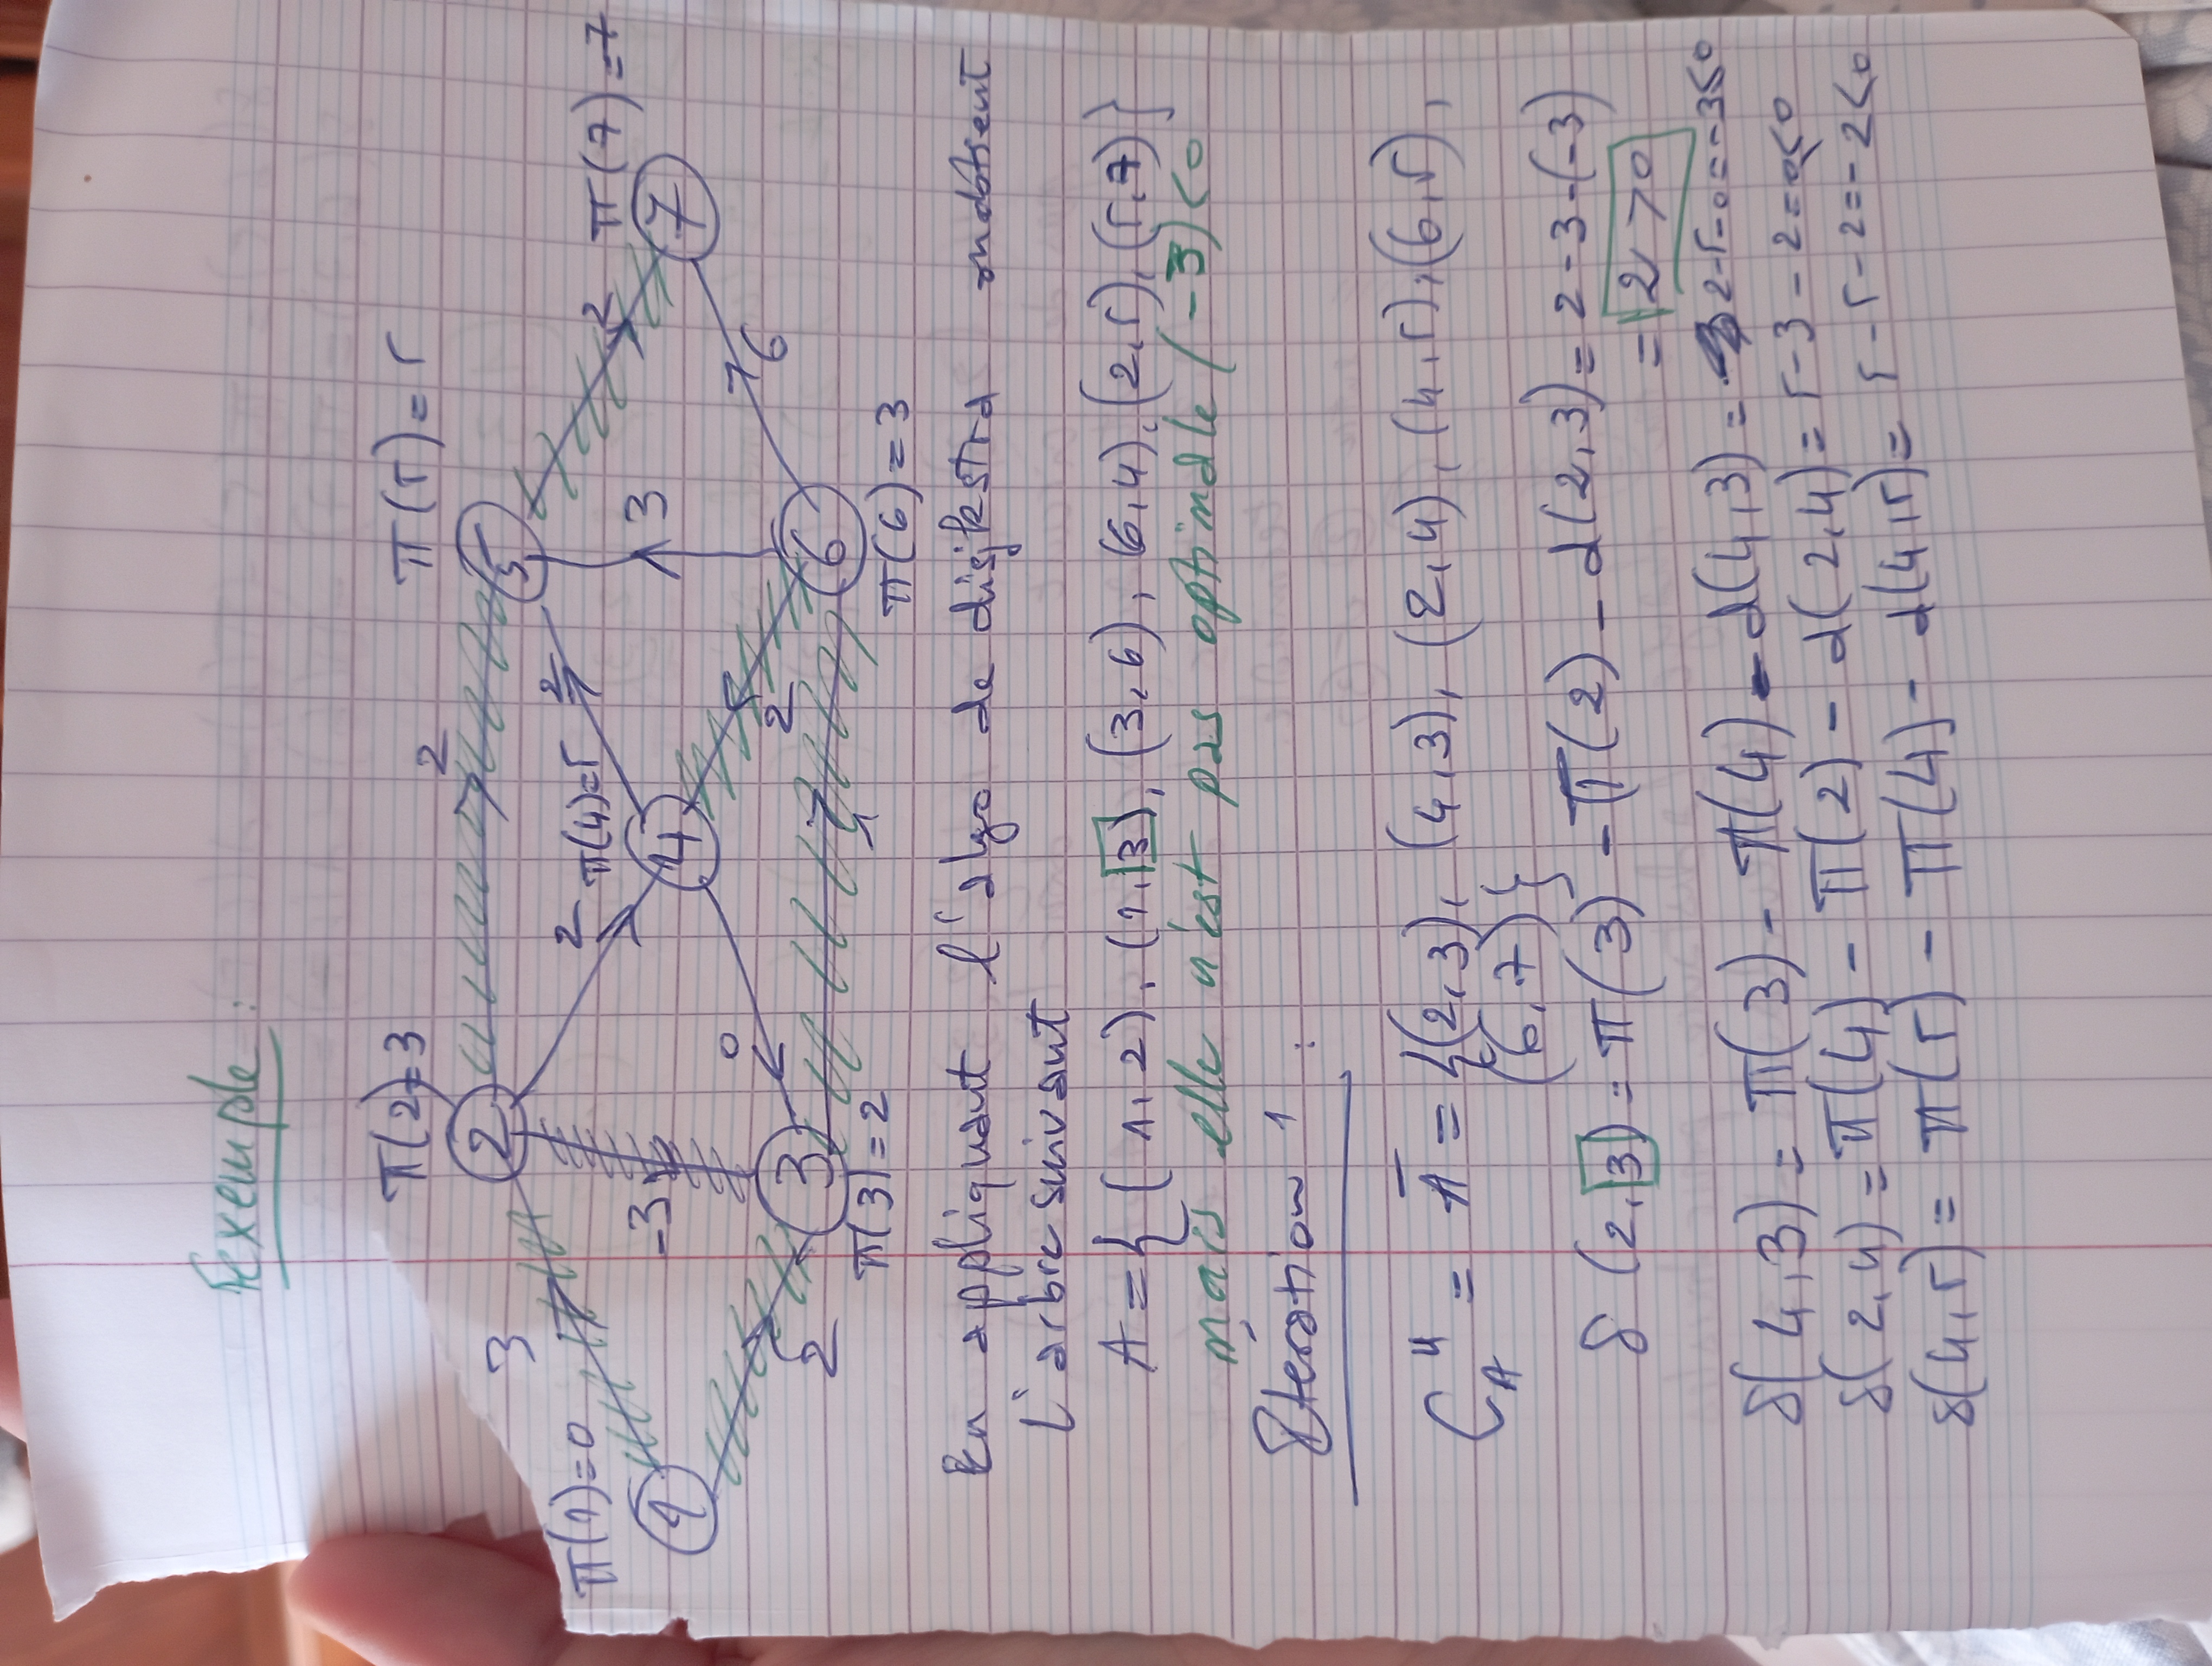 Exemple :
π(2)=3
π(5)=5
2
3
π(1)=0
2
π(4)=5
2
2
π(7)=7
2
5
1
-3
4
3
7
0
2
6
2
3
6
1
π(3)=2
π(6)=3
En appliquant l'algo de disjkstra on obtient
l'arbre suivant
A={(1,2),(1,3),(3,6),(6,4),(2,5),(5,7)}
mais elle n'est pas optimale (-3)<0
Itération 1 :
= Ā = {(2,3), (4,3), (2,4), (4,5), (6,5),
(6,7)}
δ(2,3)= π(3) - π(2) - d(2,3)= 2-3-(-3)
= 2 >0
δ(4,3) = π(3) - π(4) - d(4,3) = 2-5-0=-3≤0
δ(2,4) = π(4) - π(2) - d(2,4)= 5-3-2=0≤0
δ(4,5) = π(5) - π(4) - d(4,5)= 5-5-2=-2≤0